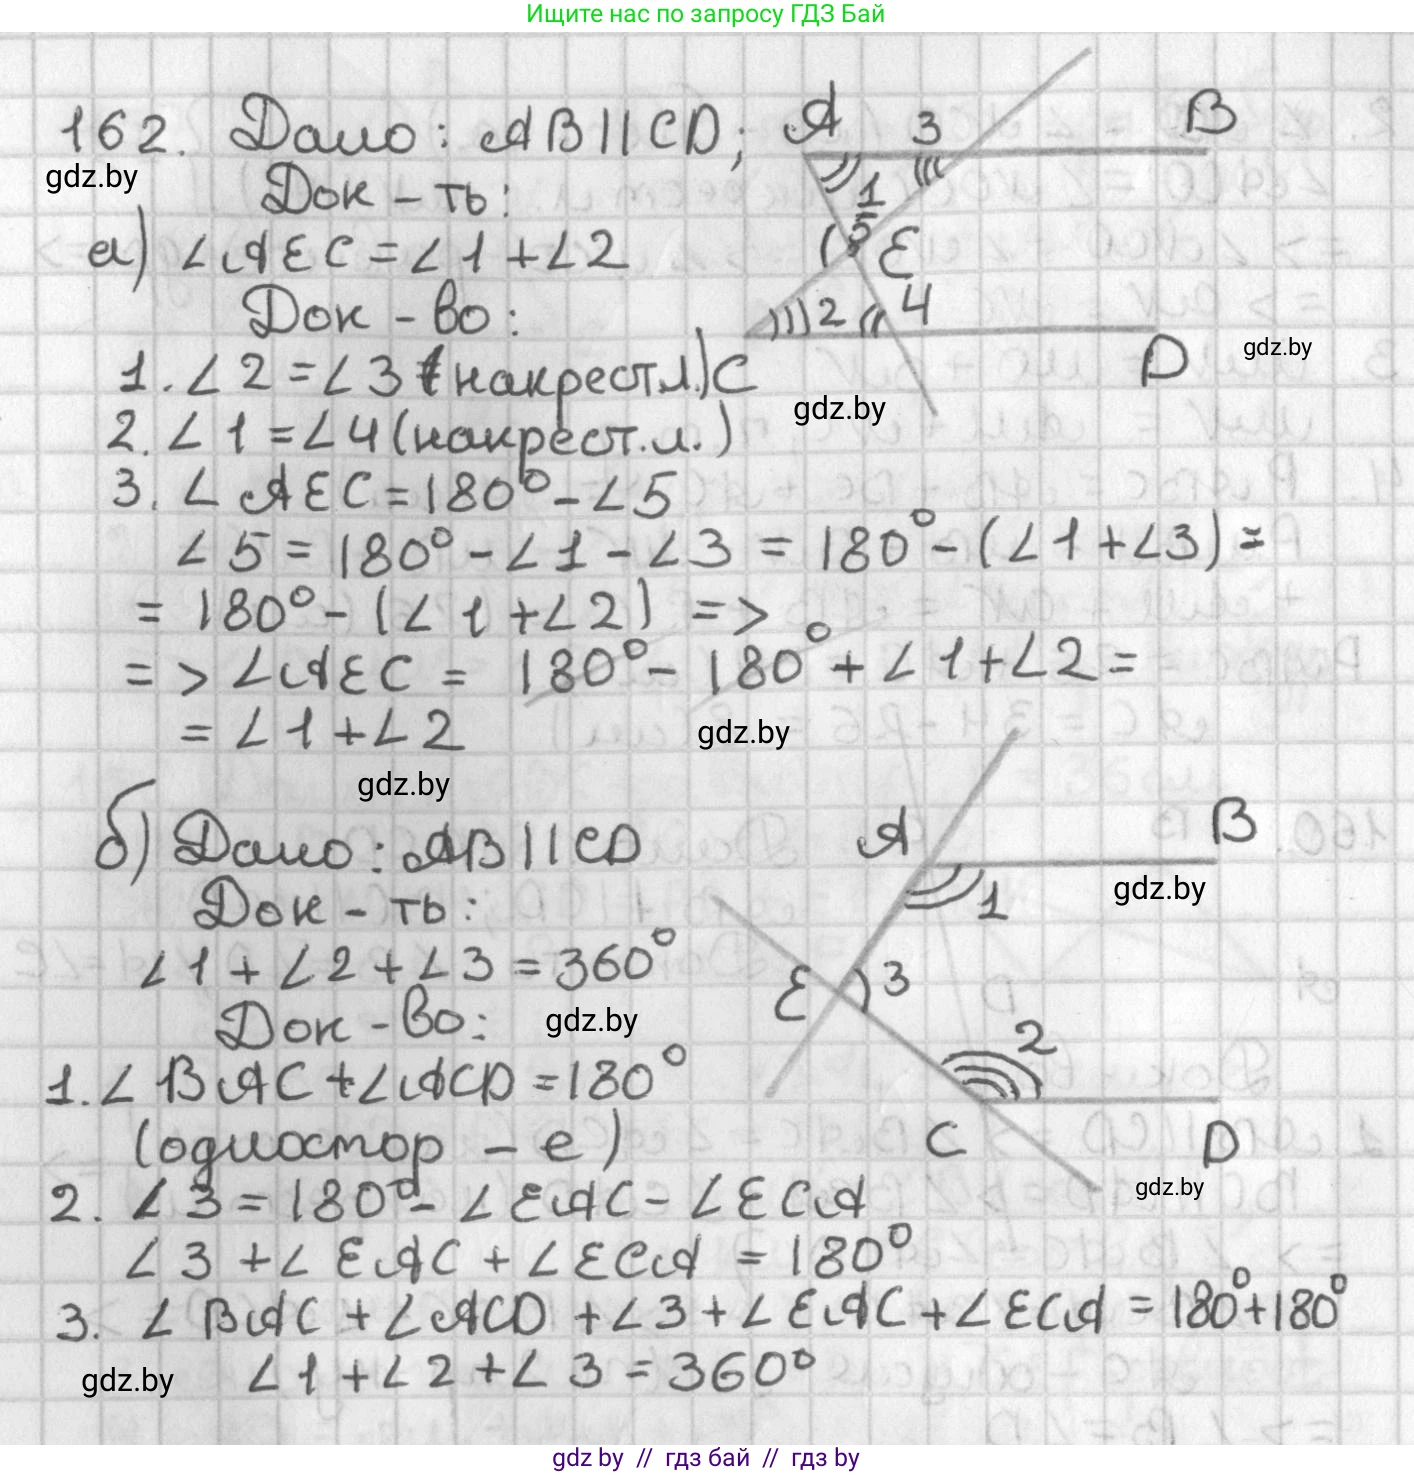 Ищите нас по запросу ГДЗ Бай
162. Дано: AB||CD;
gdz.by
Док-ть:
а) ∠AEC=∠1+∠2
Док-во:
1. ∠2=∠3 (накрест.л.)
2. ∠1=∠4 (накрест.л.)
3. ∠AEC=180°-∠5
∠5=180°-∠1-∠3=180°-(∠1+∠3)=
=180°-(∠1+∠2) =>
=> ∠AEC = 180°-180°+∠1+∠2=
=∠1+∠2
A 3 B
1
5 E
2 4
C D
gdz.by
gdz.by
gdz.by
gdz.by
б) Дано: AB||CD
Док-ть:
∠1+∠2+∠3=360°
Док-во:
gdz.by
1. ∠BAC+∠ACD=180°
(одностор-е)
2. ∠3=180°-∠EAC-∠ECA
∠3+∠EAC+∠ECA=180°
3. ∠BAC+∠ACD+∠3+∠EAC+∠ECA=180°+180°
∠1+∠2+∠3=360°
gdz.by
A B
gdz.by
1
E 3
2
C D
gdz.by
gdz.by // гдз бай // гдз by